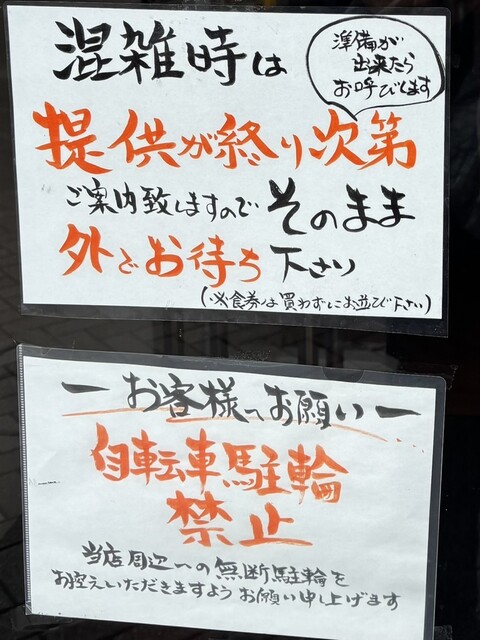 混雑時は
準備が
出来たら
お呼びします
提供が終り次第
ご案内致しますので そのまま
外でお待ち下さい
(※食券は買わずにお並び下さい)
ーお客様へお願いー
自転車駐輪
禁止
当店周辺への無断駐輪を
お控えいただきますようお願い申し上げます